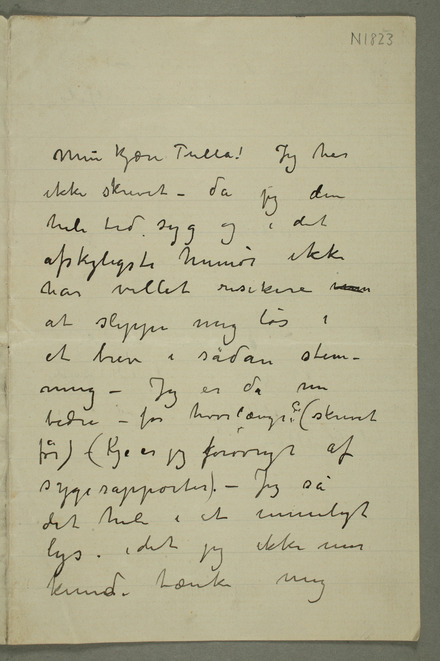 N1823
Min kjære Tulla! Jeg har
ikke skrevet – da jeg den
hele tid syg og i det
afskyligste humör ikke
har vellet risikere
at slippe mig lös i
et brev i sådan stem-
ning – Jeg er da nu
bedre – for hvorlænge? (skrevet
för) – (Kje er jeg forövrigt af
sygerapporter). – Jeg så
det hele i et umuligt
lys. idet jeg ikke mer
kunde tænke mig